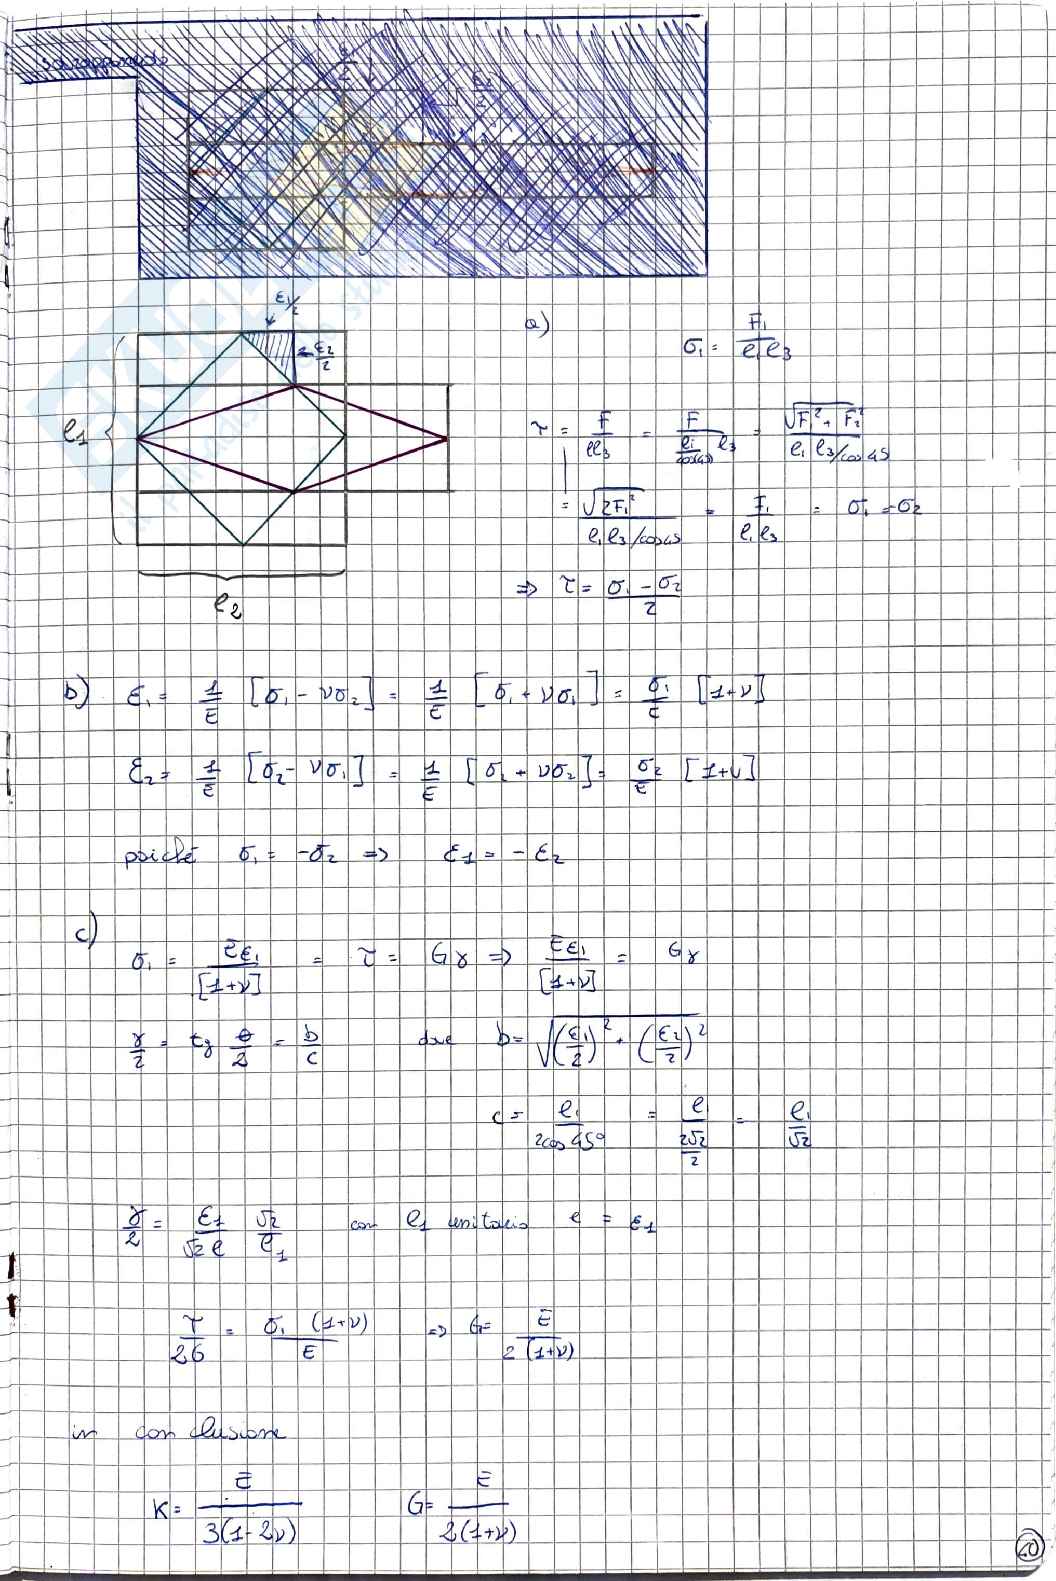 ε₁/2
-ε₂/2
l₁
l₂
a) σ₁ = F₁/(l₁l₃)
τ = F/(ll₃) = F/((l₁/cos45) l₃) = √(F₁² + F₂²)/(l₁l₃/cos45)
= √(2F₁²)/(l₁l₃/cos45) = F₁/(l₁l₃) = σ₁ = -σ₂
=> τ = (σ₁ - σ₂)/2
b) ε₁ = 1/E [σ₁ - νσ₂] = 1/E [σ₁ + νσ₁] = σ₁/E [1+ν]
ε₂ = 1/E [σ₂ - νσ₁] = 1/E [σ₂ + νσ₂] = σ₂/E [1+ν]
poiché σ₁ = -σ₂ => ε1 = -ε₂
c)
σ₁ = Eε₁/[1+ν] = τ = Gγ => Eε₁/[1+ν] = Gγ
γ/2 = tg θ/2 = b/c dove b = √((ε₁/2)² + (ε₂/2)²)
c = l₁/(2cos45°) = l/(2√2/2) = l₁/√2
γ/2 = ε1/(√2 l) √2/l₁ con l₁ unitario e = ε₁
τ/2G = σ₁(1+ν)/E => G = E/(2(1+ν))
in conclusione
K = E/(3(1-2ν)) G = E/(2(1+ν))
20